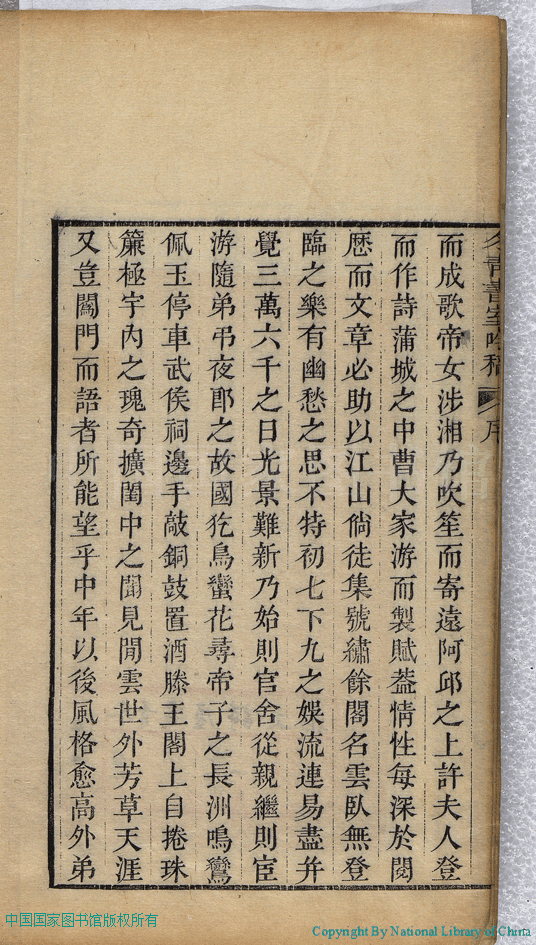 冬青書室吟稿 序
而成歌帝女涉湘乃吹笙而寄遠阿邱之上許夫人登
而作詩蒲城之中曹大家游而製賦葢情性每深於閱
歷而文章必助以江山倘徒集號繡餘閣名雲臥無登
臨之樂有幽愁之思不特初七下九之娛流連易盡幷
覺三萬六千之日光景難新乃始則官舍從親繼則宦
游隨弟弔夜郎之故國犵鳥蠻花尋帝子之長洲鳴鸞
佩玉停車武侯祠邊手敲銅鼓置酒滕王閣上自捲珠
簾極宇內之瑰奇擴閨中之聞見閒雲世外芳草天涯
又豈閫門而語者所能望乎中年以後風格愈高外弟
中国国家图书馆版权所有
Copyright By National Library of China